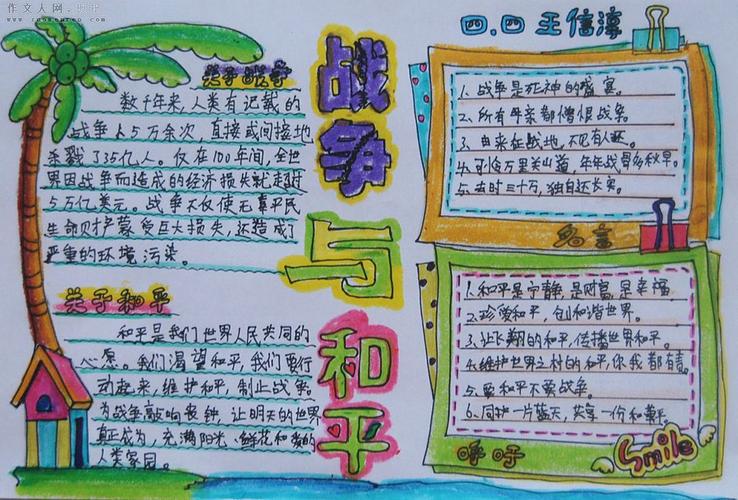 作文大网
四.四 王信淳
战争与和平
关于战争
数千年来,人类有记载的
战争占5万余次,直接或间接地
杀戮了35亿人。仅在100年间,全世
界因战争而造成的经济损失就超过
5万亿美元。战争不仅使无辜平民
生命财产蒙受巨大损失,还造成了
严重的环境污染。
关于和平
和平是我们世界人民共同的
心愿。我们渴望和平,我们要行
动起来,维护和平,制止战争。
为战争敲响丧钟,让明天的世界
真正成为,充满阳光、鲜花和爱的
人类家园。
1.战争是死神的盛宴。
2.所有母亲都憎恨战争。
3.由来征战地,不见有人还。
4.可怜万里关山道,年年战骨多秋草。
5.去时三十万,独自还长安。
名言
1.和平是宁静,是财富,是幸福
2.珍爱和平,创和谐世界。
3.让飞翔的和平,传播世界和平。
4.维护世界之村的和平,你我都有责。
5.要和平不要战争。
6.同护一片蓝天,共享一份和平
呼吁
Smile